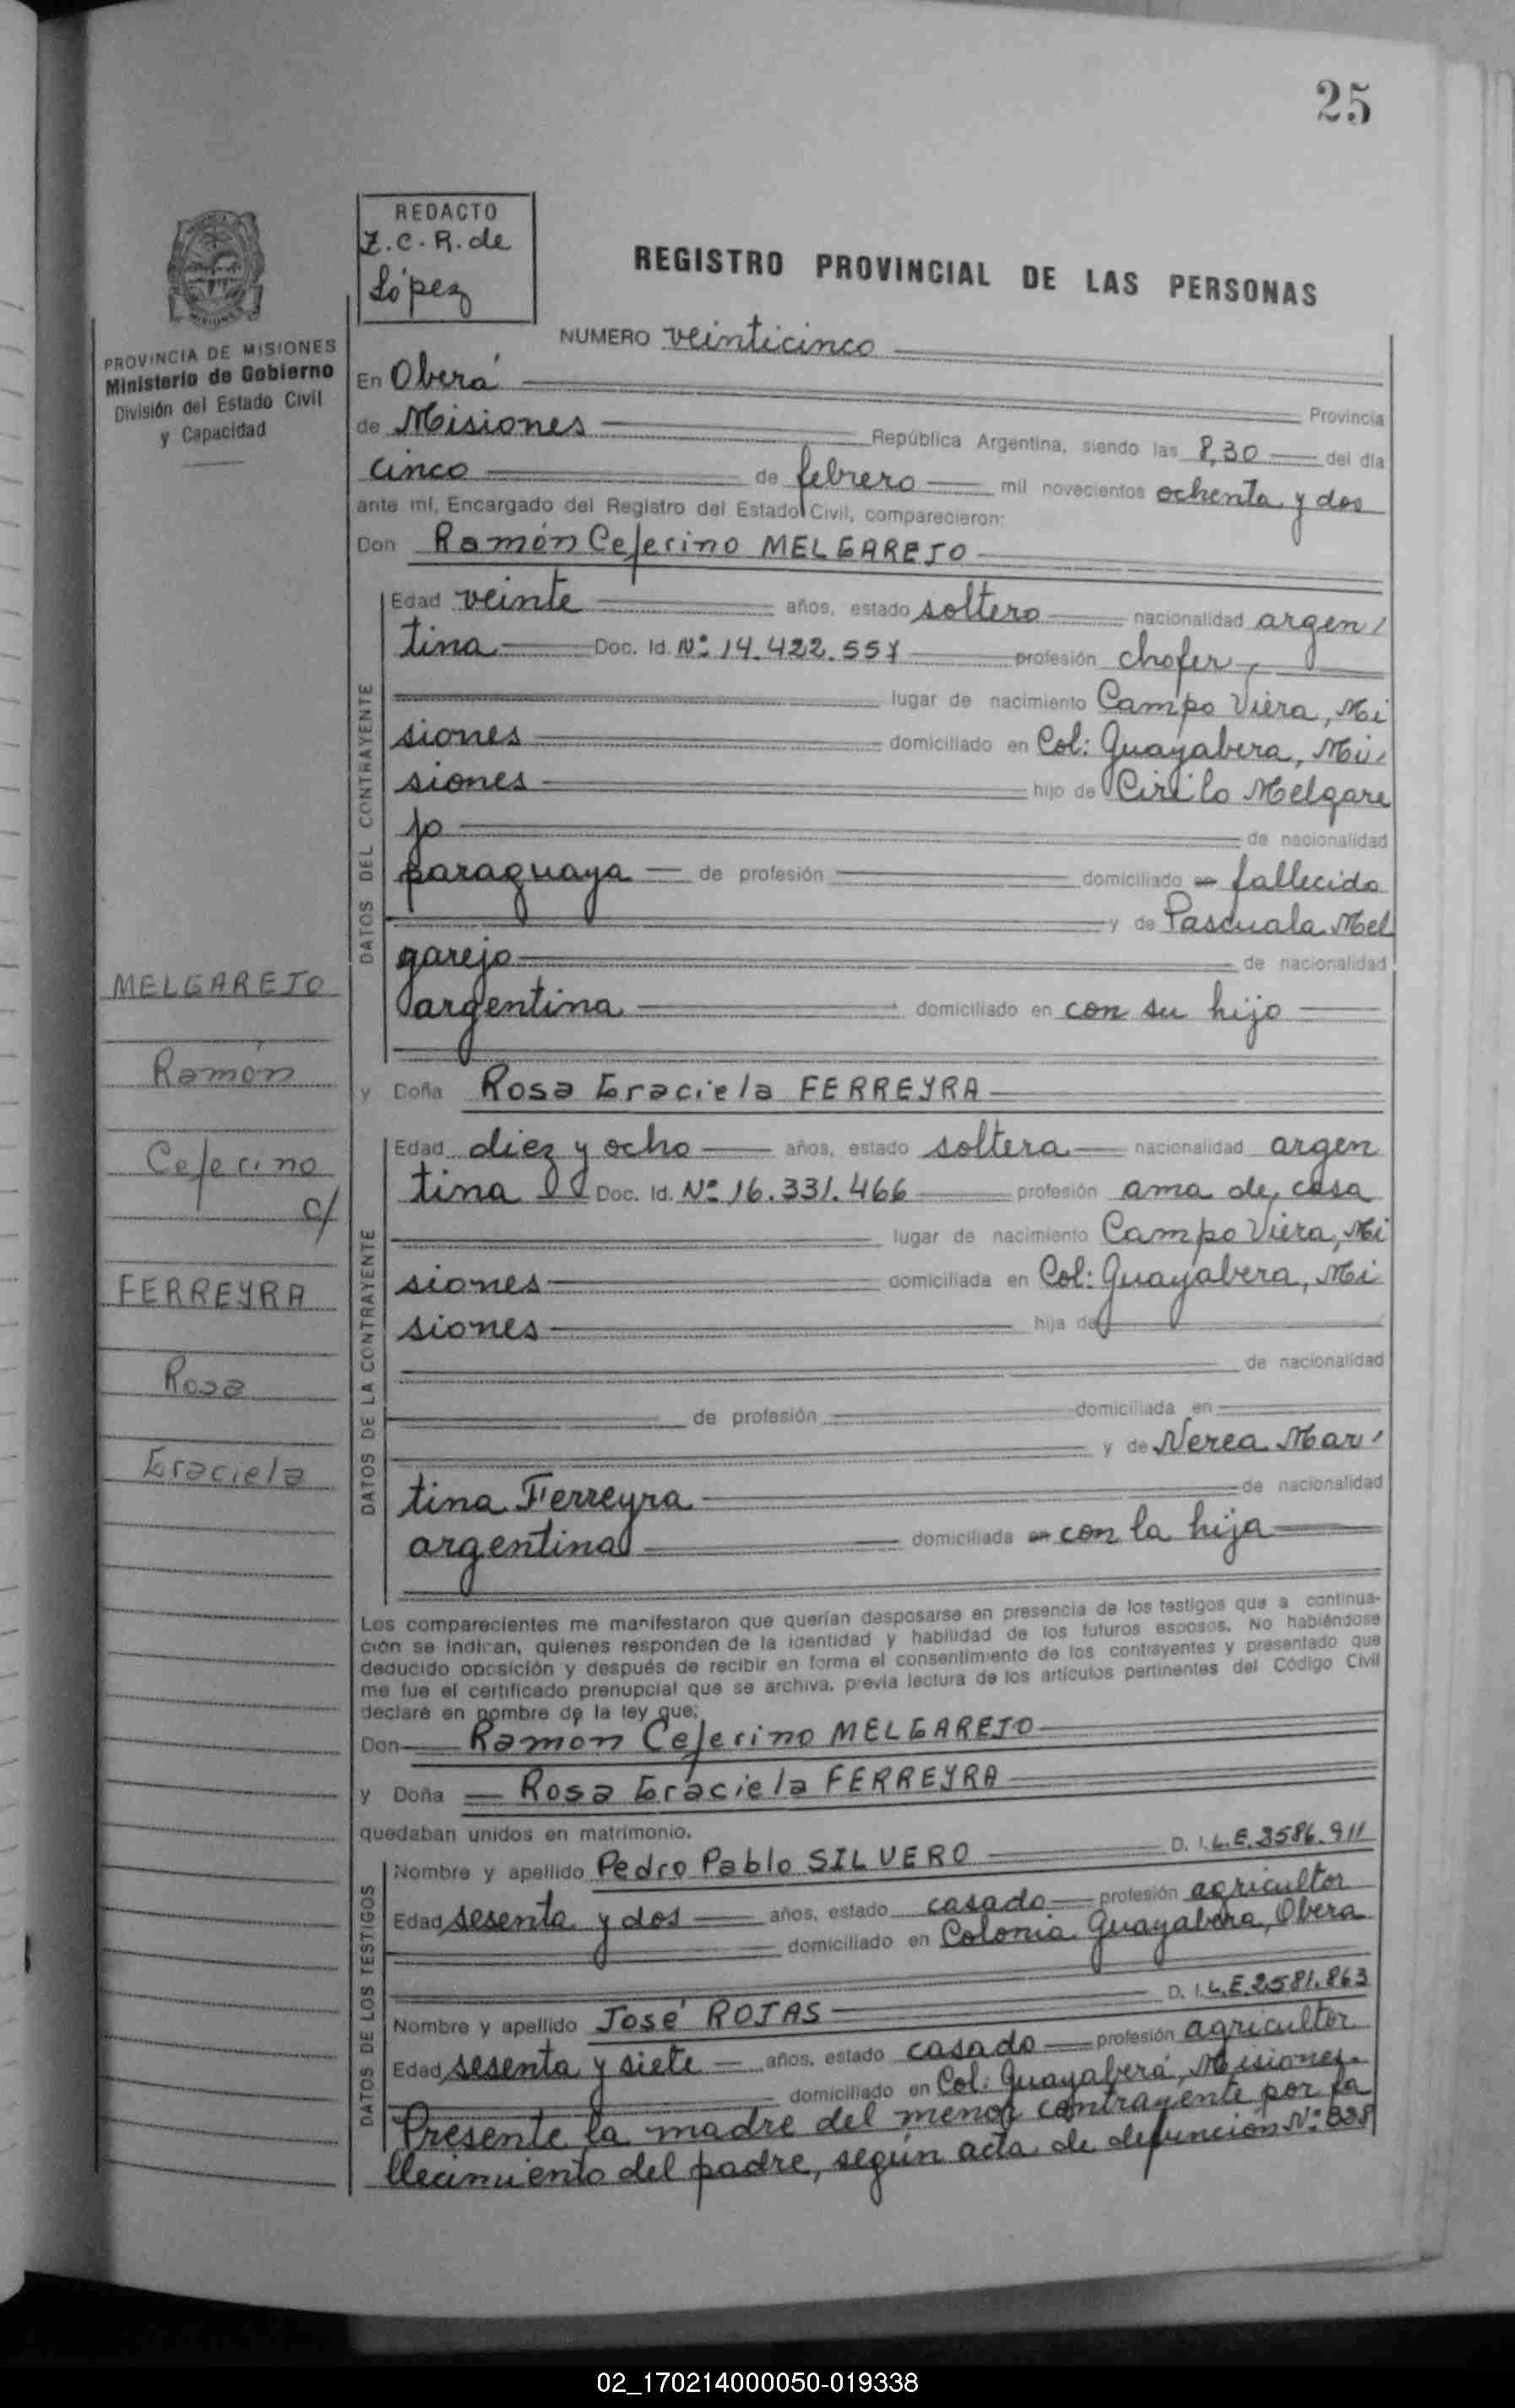 25
REDACTO
Z.C.R. de
López
REGISTRO PROVINCIAL DE LAS PERSONAS
PROVINCIA DE MISIONES
Ministerio de Gobierno
División del Estado Civil
y Capacidad
NUMERO veinticinco
En Oberá Provincia
de Misiones República Argentina, siendo las 8,30 del día
cinco de febrero mil novecientos ochenta y dos
ante mí, Encargado del Registro del Estado Civil, comparecieron:
Don Ramón Ceferino MELGAREJO
DATOS DEL CONTRAYENTE
Edad veinte años, estado soltero nacionalidad argen
tina Doc. Id. Nº 14.422.557 profesión chofer,
lugar de nacimiento Campo Viera, Mi
siones domiciliado en Col: Guayabera, Mi
siones hijo de Cirilo Melgare
jo de nacionalidad
paraguaya de profesión domiciliado en fallecido
y de Pascuala Mel
garejo de nacionalidad
argentina domiciliado en con su hijo
y Doña Rosa Graciela FERREYRA
DATOS DE LA CONTRAYENTE
Edad diez y ocho años, estado soltera nacionalidad argen
tina Doc. Id. Nº 16.331.466 profesión ama de casa
lugar de nacimiento Campo Viera, Mi
siones domiciliada en Col: Guayabera, Mi
siones hija de
de nacionalidad
de profesión domiciliada en
y de Nerea Mar
tina Ferreyra de nacionalidad
argentina domiciliada en con la hija
MELGAREJO
Ramón
Ceferino
c/
FERREYRA
Rosa
Graciela
Los comparecientes me manifestaron que querían desposarse en presencia de los testigos que a continua-
ción se indican, quienes responden de la identidad y habilidad de los futuros esposos. No habiéndose
deducido oposición y después de recibir en forma el consentimiento de los contrayentes y presentado que
me fue el certificado prenupcial que se archiva, previa lectura de los artículos pertinentes del Código Civil
declaré en nombre de la ley que:
Don Ramón Ceferino MELGAREJO
y Doña Rosa Graciela FERREYRA
quedaban unidos en matrimonio.
DATOS DE LOS TESTIGOS
Nombre y apellido Pedro Pablo SILVERO D. I. L.E. 3586.911
Edad sesenta y dos años, estado casado profesión agricultor
domiciliado en Colonia Guayabera, Obera
Nombre y apellido José ROJAS D. I. L.E. 2581.863
Edad sesenta y siete años, estado casado profesión agricultor
domiciliado en Col: Guayabera, Misiones.
Presente la madre del menor contrayente por fa
llecimiento del padre, según acta de defunción Nº 338
02_170214000050-019338